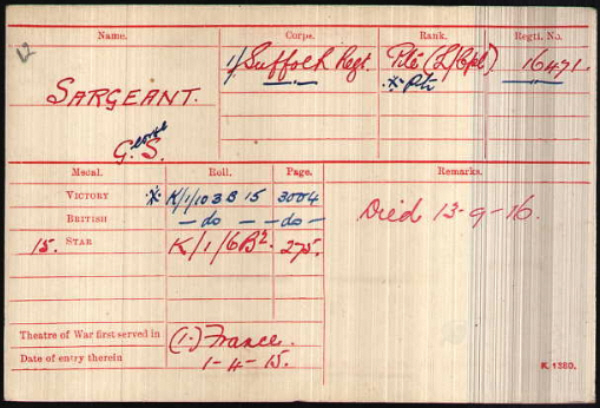 Name. Corps. Rank. Regtl. No.
1/ Suffolk Regt. Pte (L/Cpl). 16471.
* Pte
SARGEANT.
George S.
Medal. Roll. Page. Remarks.
VICTORY * K/1/103 B 15 3004
BRITISH — do — — do —
15. STAR K/1/6B². 275.
Died 13-9-16.
Theatre of War first served in (1.) France.
Date of entry therein 1-4-15.
K. 1380.